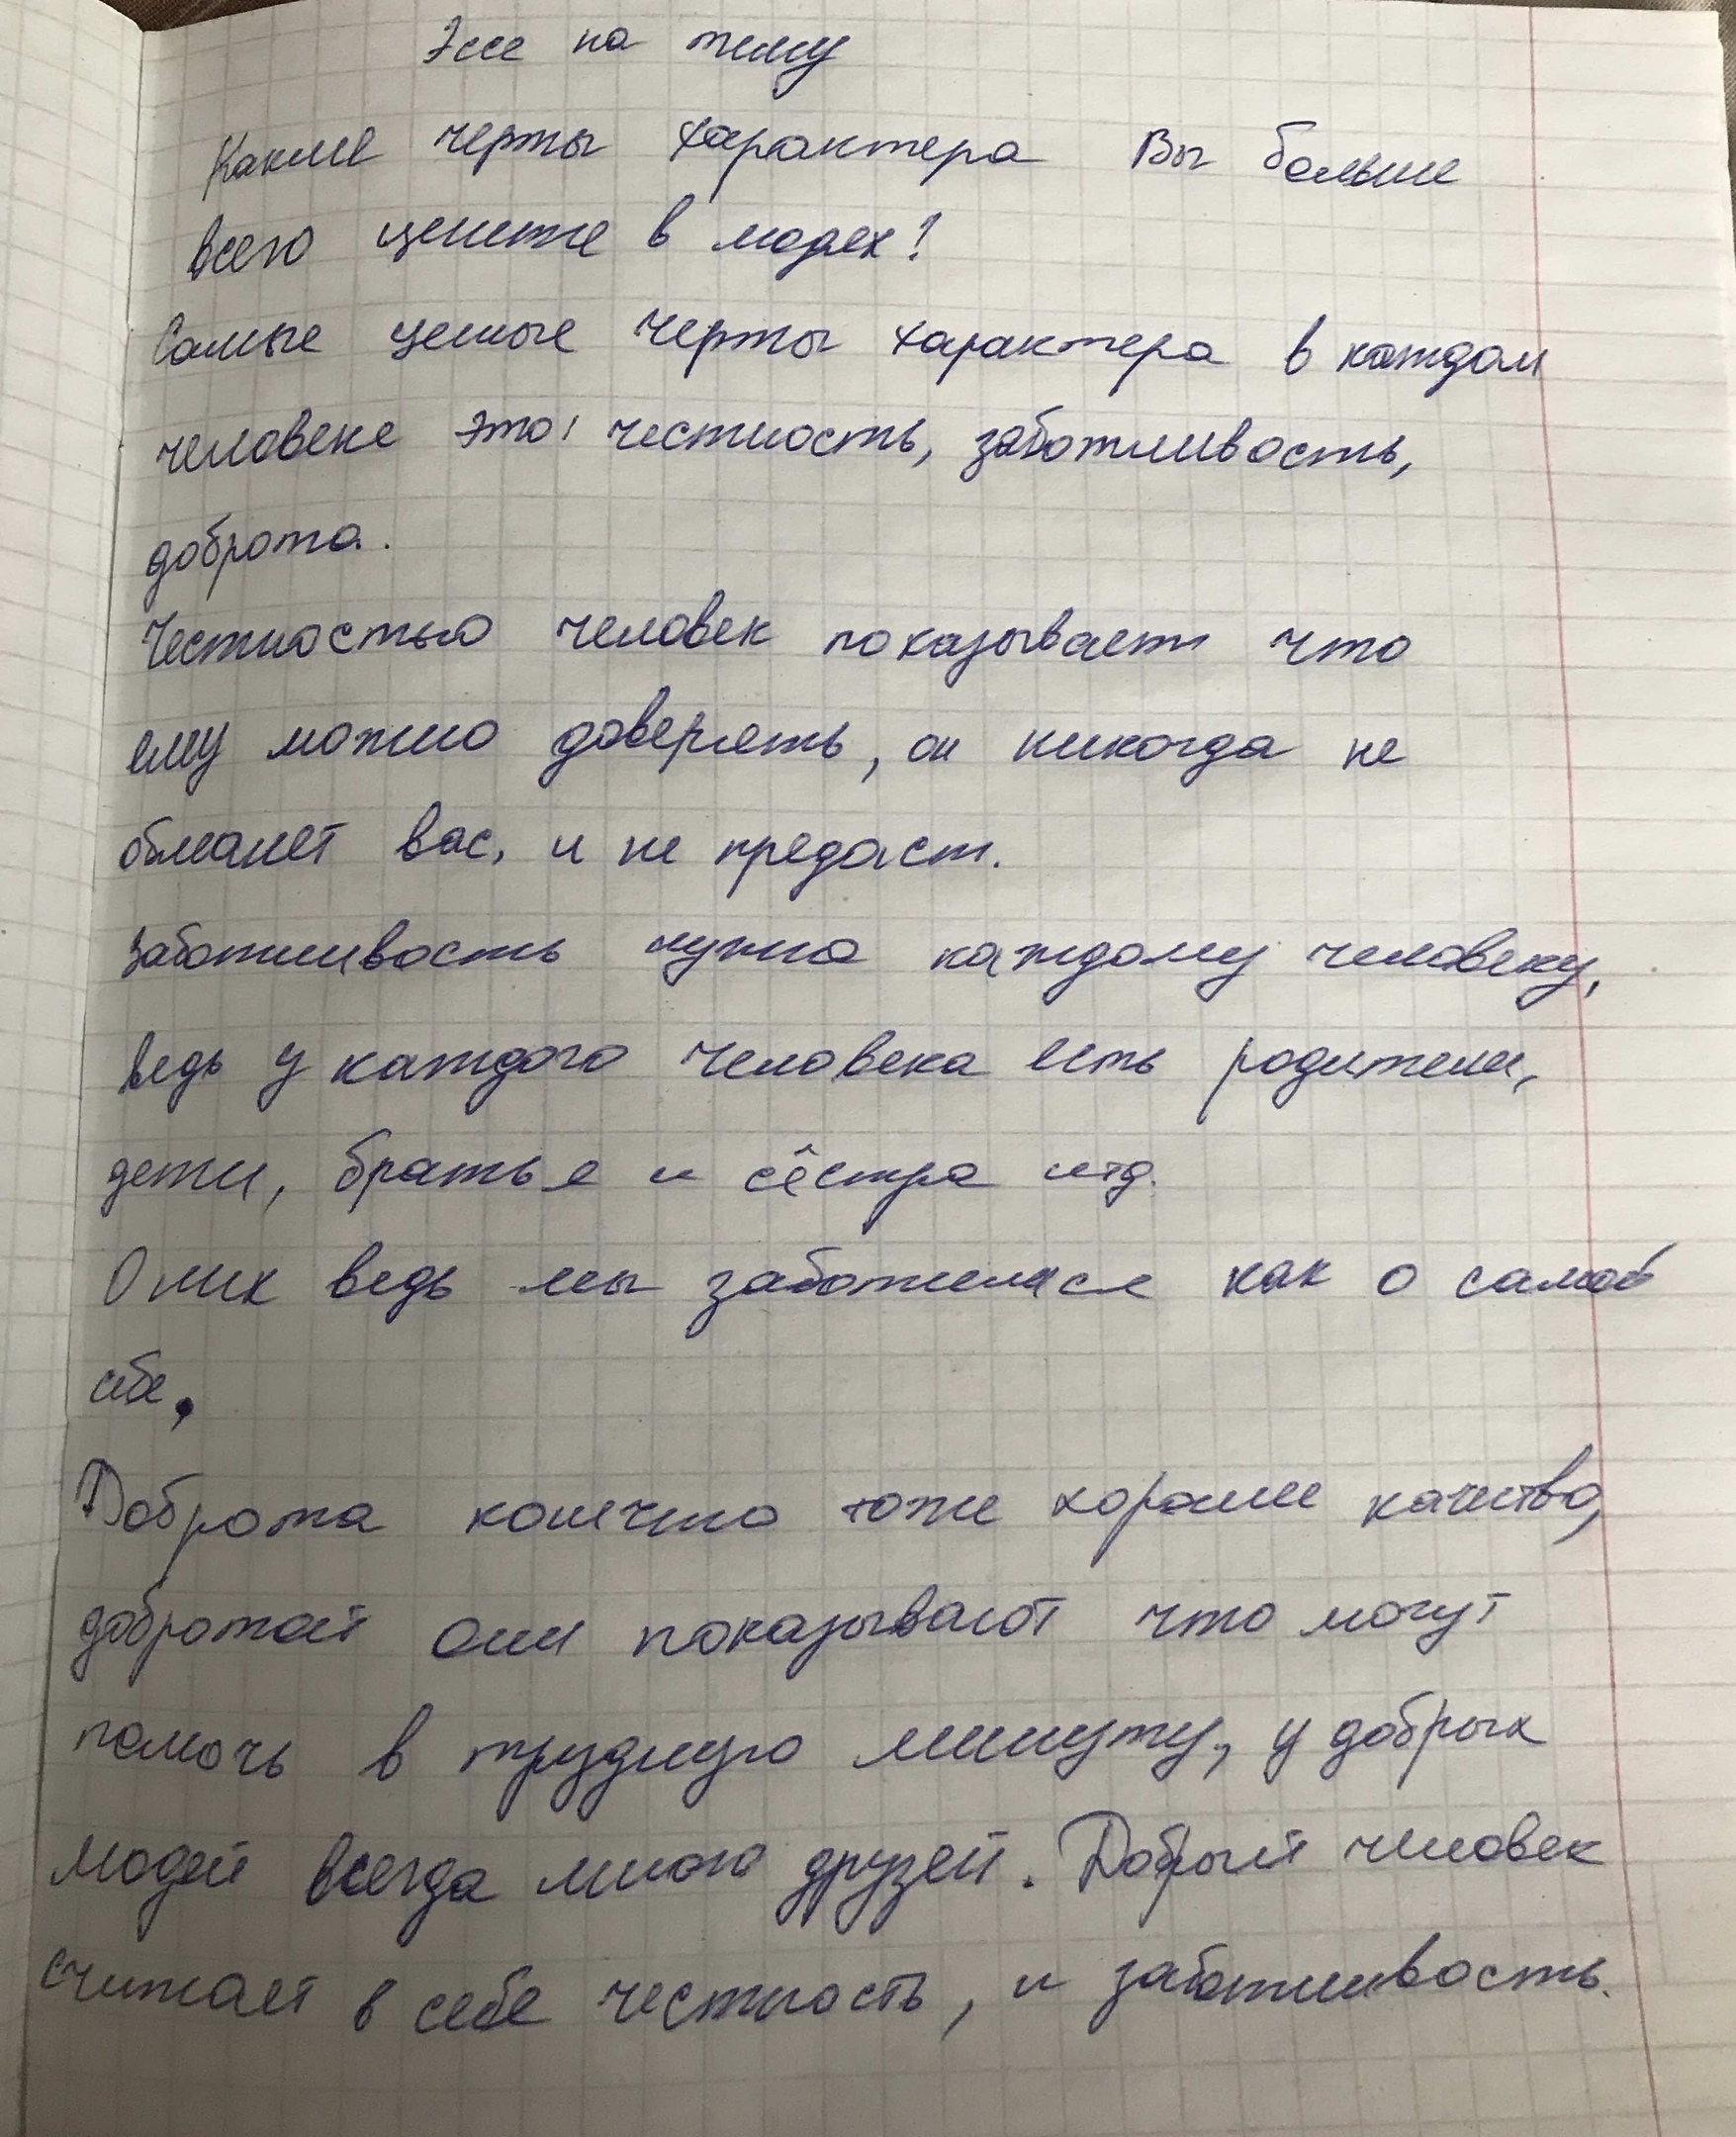 Эссе на тему
Какие черты характера Вы больше
всего цените в людях?
Самые ценные черты характера в каждом
человеке это: честность, заботливость,
доброта.
Честностью человек показывает что
ему можно доверять, он никогда не
обманет вас, и не предаст.
Заботливость нужна каждому человеку,
ведь у каждого человека есть родители,
дети, братья и сёстра итд.
О них ведь мы заботимся как о самой
себе.
Доброта конечно тоже хорошее качество,
добротой они показывают что могут
помочь в трудную минуту, у добрых
людей всегда много друзей. Добрый человек
считает в себе честность, и заботливость.